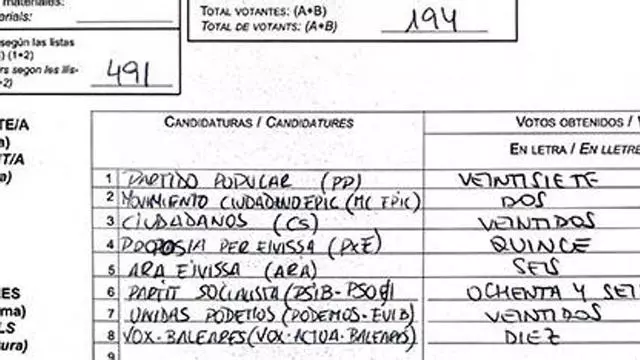 materiales:
rials:
TOTAL VOTANTES: (A+B)
TOTAL DE VOTANTS: (A+B)
194
según las listas
) (1+2)
rs segon les llis-
+2)
491
TE/A
a)
NT/A
a)
CANDIDATURAS / CANDIDATURES
VOTOS OBTENIDOS /
EN LETRA / EN LLETRE
1 PARTIDO POPULAR (PP) VEINTISIETE
2 MOVIMIENTO CIUDADANO EPIC (MC EPIC) DOS
3 CIUDADANOS (CS) VEINTIDOS
4 PROPOSTA PER EIVISSA (PXE) QUINCE
5 ARA EIVISSA (ARA) SEIS
6 PARTIT SOCIALISTA (PSIB-PSOE) OCHENTA Y SE
7 UNIDAS PODEMOS (PODEMOS-EUIB) VEINTIDOS
8 VOX-BALEARES (VOX-ACTUA-BALEARES) DIEZ
9
NES
ma)
LS
tura)